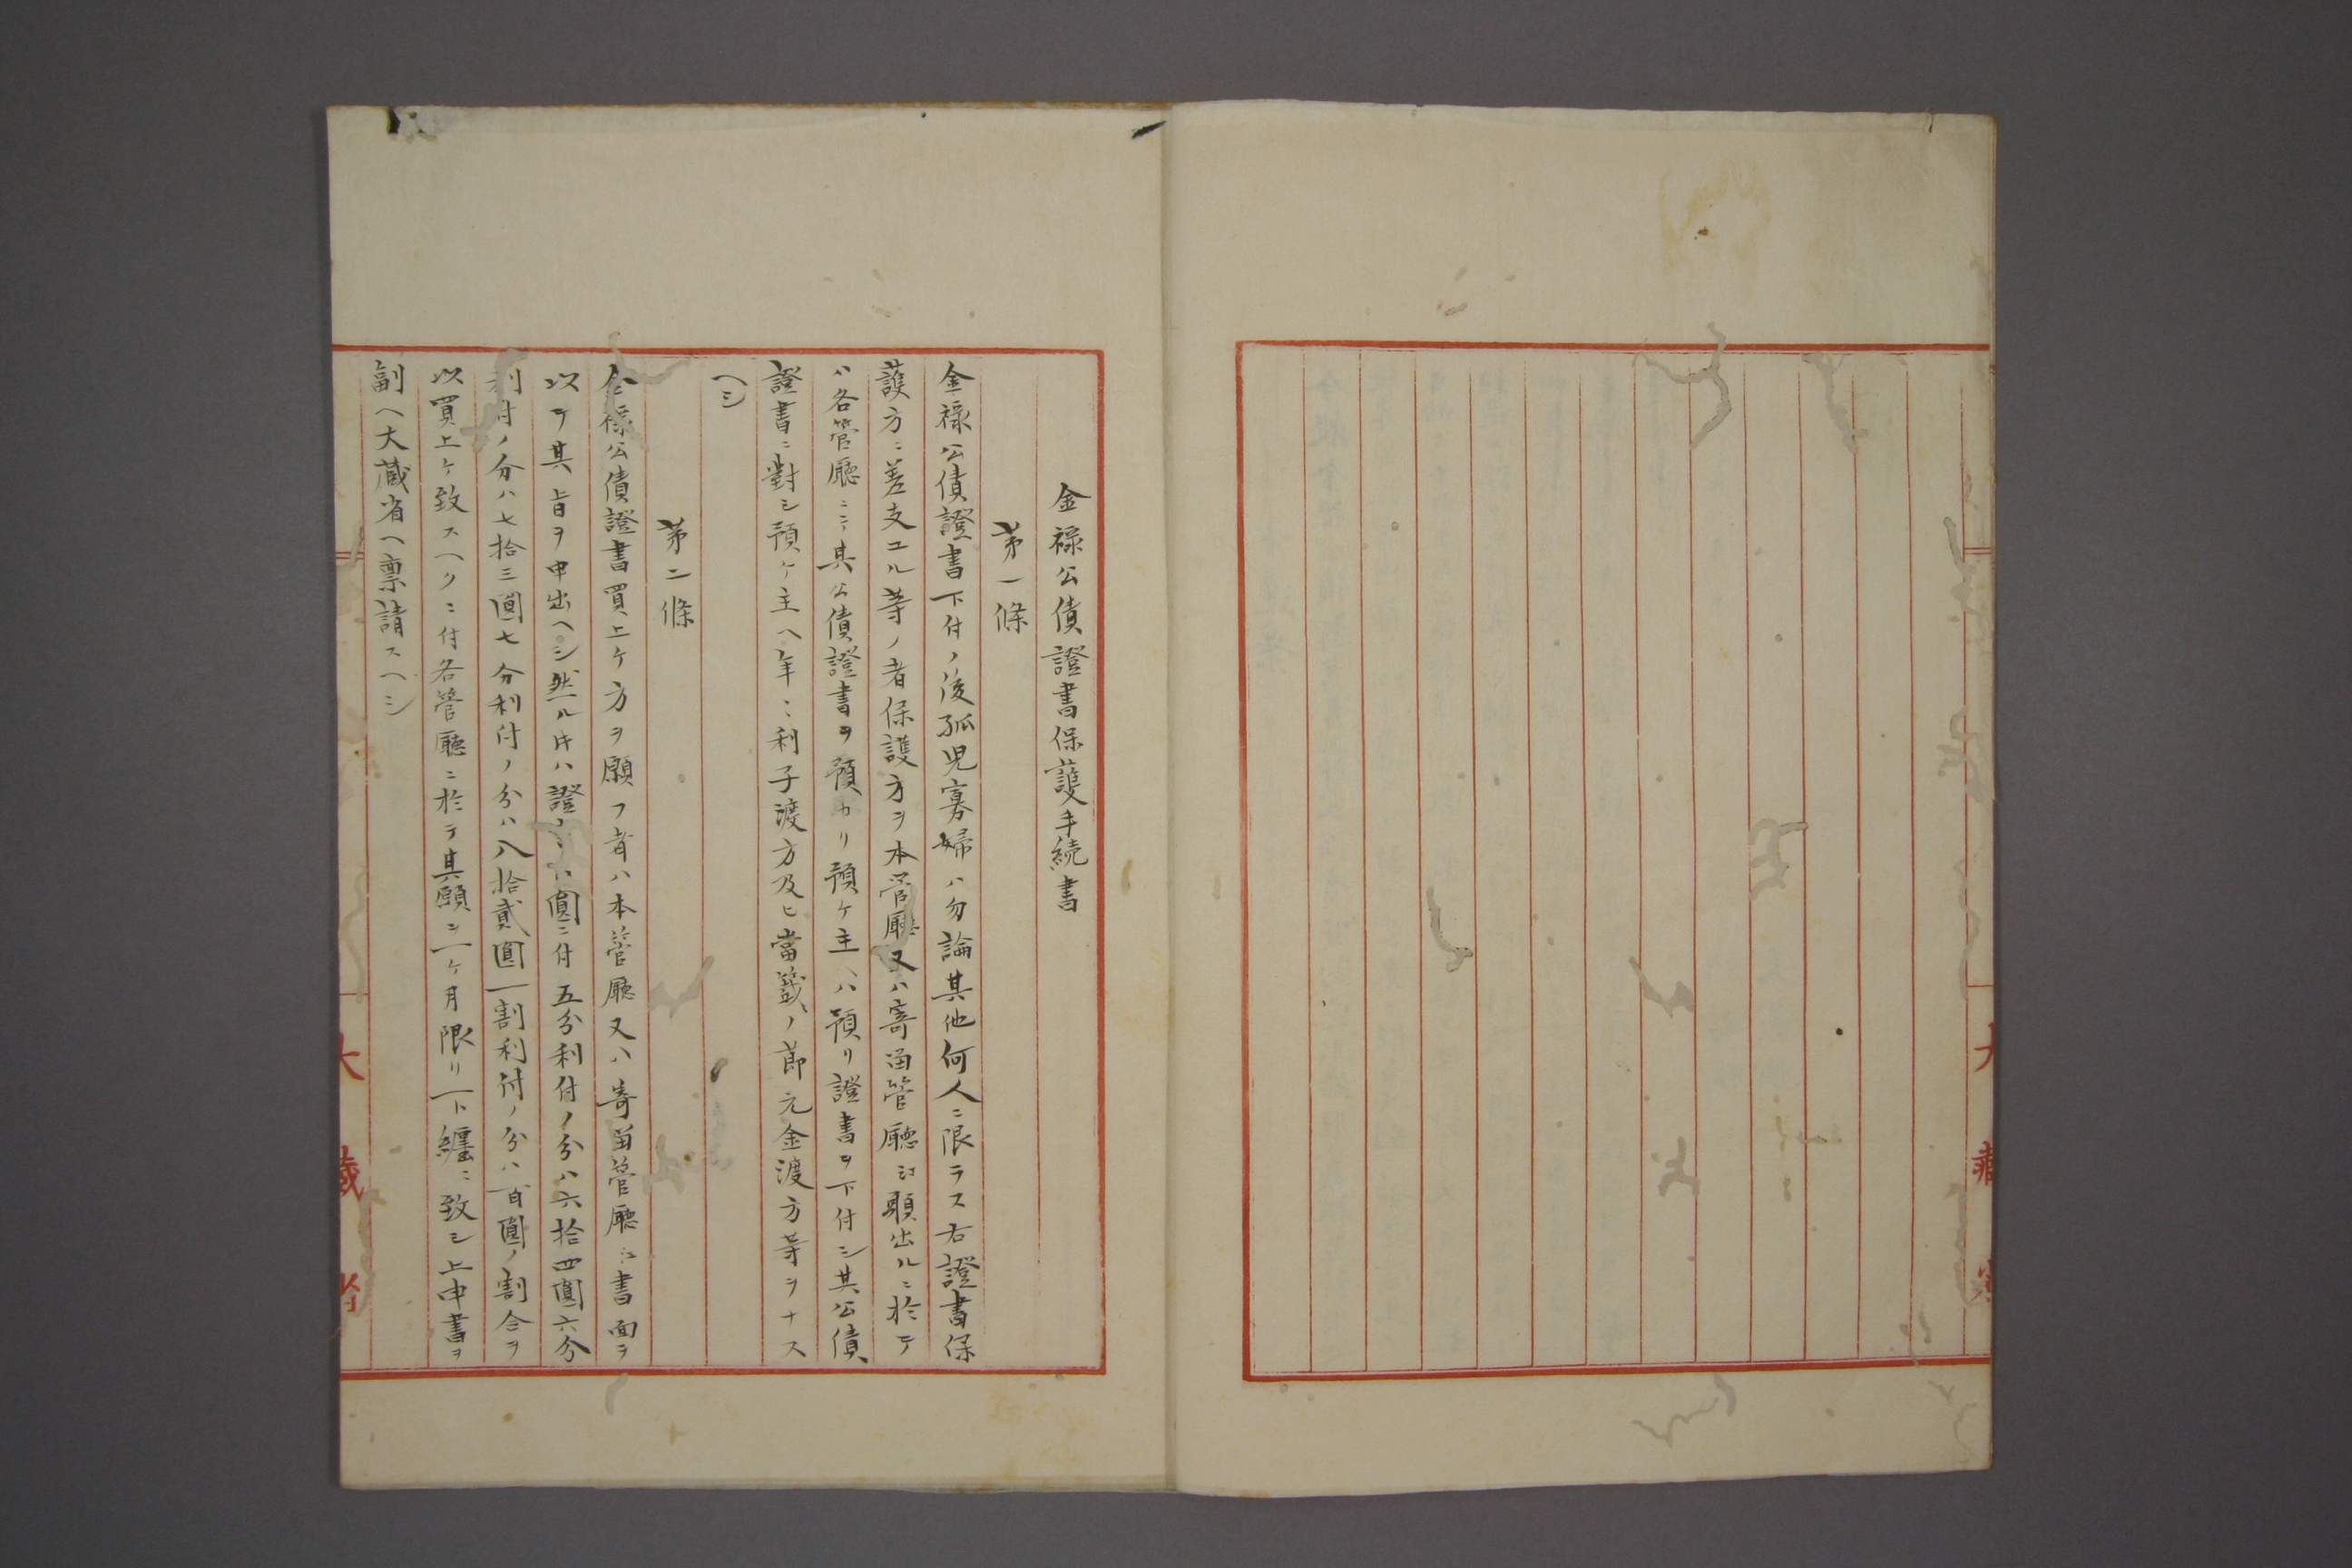 大藏省
金禄公債證書保護手続書
第一條
金禄公債證書下付ノ後孤児寡婦ハ勿論其他何人ニ限ラス右證書保
護方ニ差支エル等ノ者保護方ヲ本管廳又ハ寄留管廳ヘ願出ルニ於テ
ハ各管廳ニテ其公債證書ヲ預カリ預ケ主ヘハ預リ證書ヲ下付シ其公債
證書ニ對シ預ケ主ヘ年々利子渡方及ヒ當籤ノ節元金渡方等ヲナス
ヘシ
第二條
金禄公債證書買上ケ方ヲ願フ者ハ本管廳又ハ寄留管廳ヘ書面ヲ
以テ其旨ヲ申出ヘシ然ル片ハ證圓ニ付五分利付ノ分ハ六拾四圓六分
利付ノ分ハ七拾三圓七分利付ノ分ハ八拾貳圓一割利付ノ分ハ百圓ノ割合ヲ
以買上ケ致スヘクニ付各管廳ニ於テ其願ヲ一ケ月限リ一ト纒ニ致シ上申書ヲ
副ヘ大藏省ヘ禀請スヘシ
大藏省